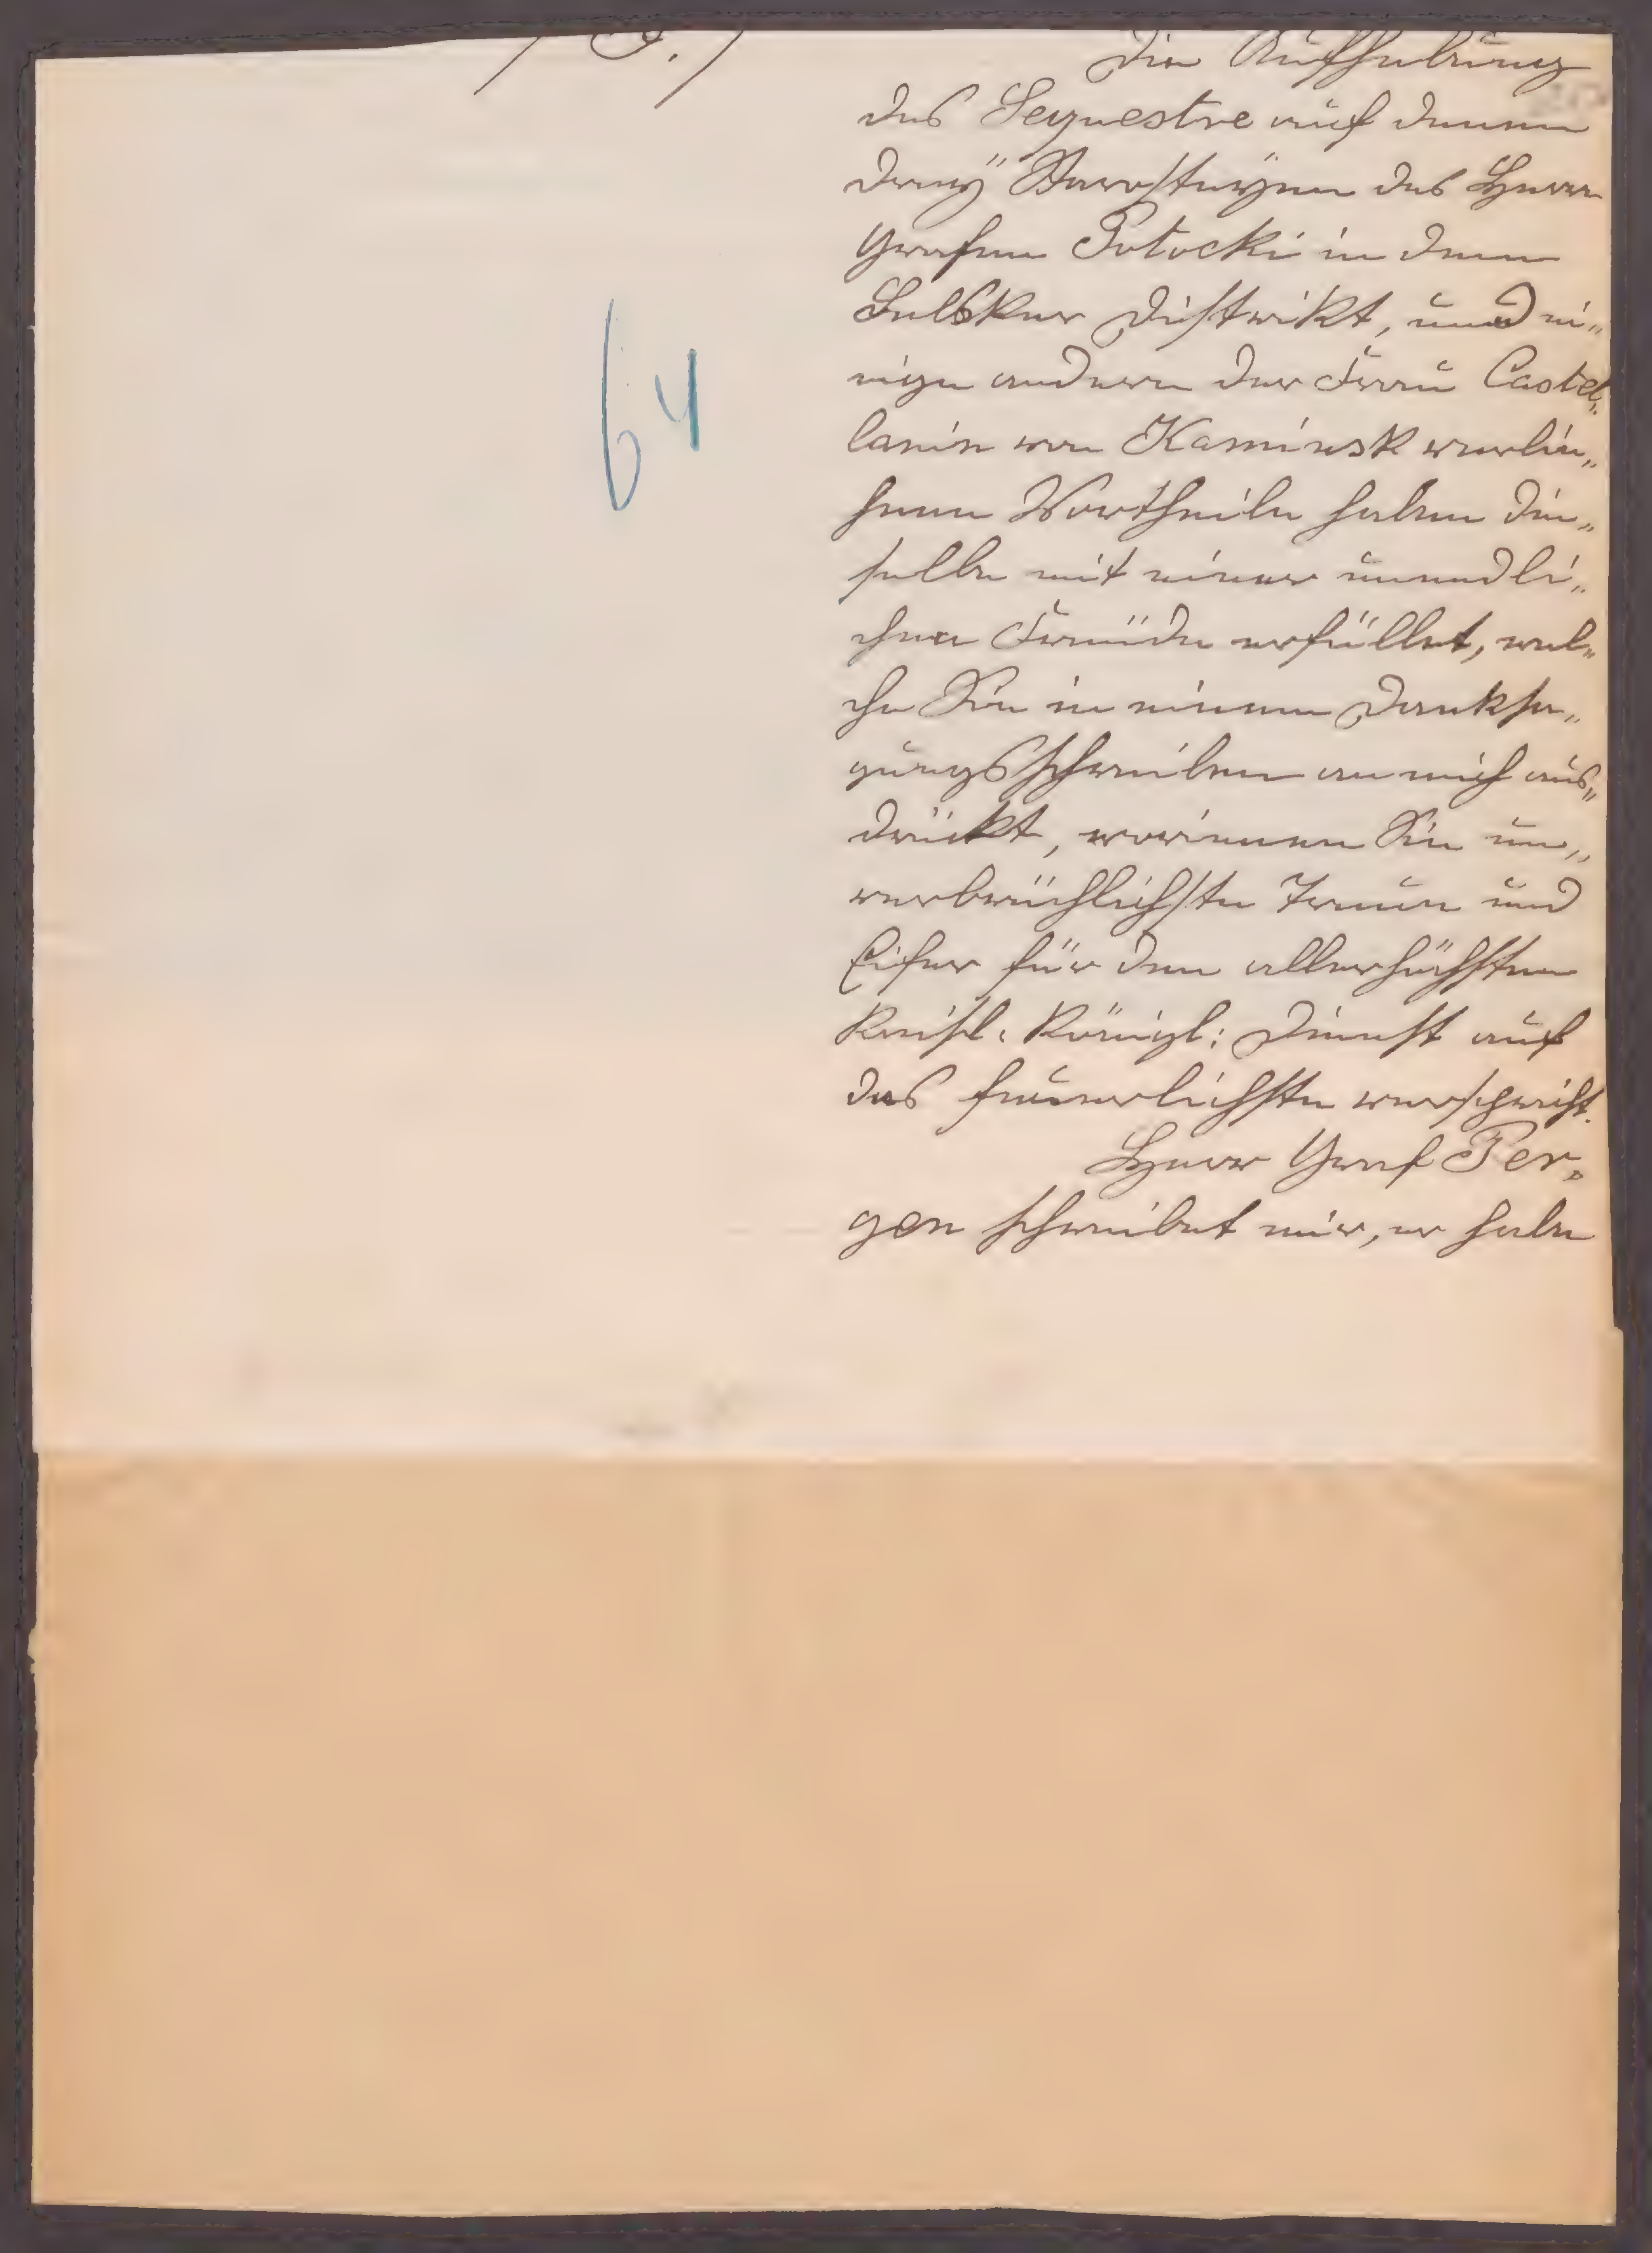 Die Aufhebung
des Sequestre auf denen
dreÿ Starosteÿen des Herrn
Grafen Potocki in dem
Belsker District, und ei„
nige andere der Frau Castel„
lanin von Kaminsk verlie„
hene Vortheile haben die„
selbe mit einer unendli„
chen Freüde erfüllet, wel„
che Sie in einem Danksa„
gungsschreiben an mich aus„
drückt, worinnen Sie un„
verbrüchlichste Treue und
Eifer für den allerhöchsten
Kaisl: Königl: Dienst auf
das feuerlichste verspricht.
Herr Graf Per„
gen schreibet mir, er habe
64